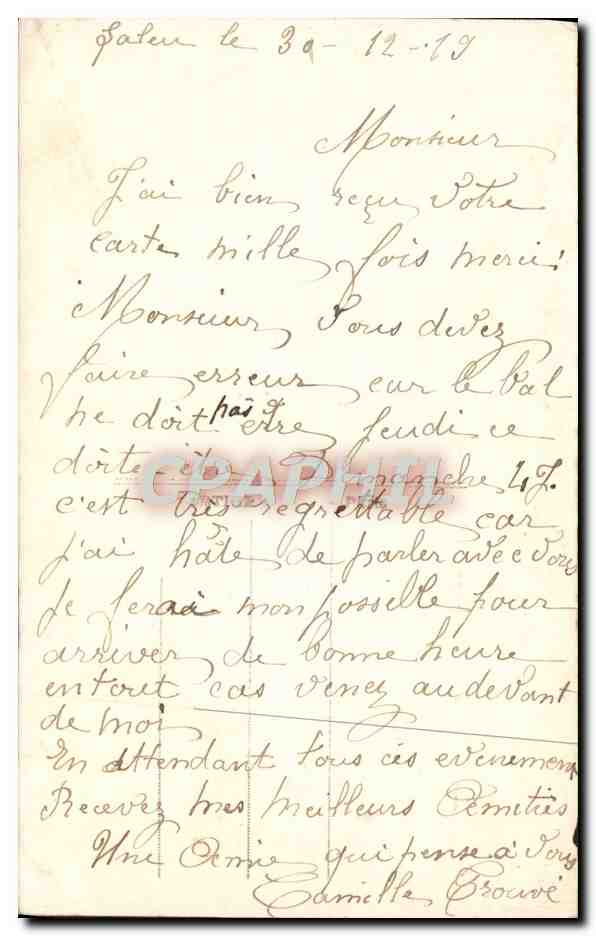 le 30 - 12 - 19
Monsieur
J'ai bien reçu Votre
carte mille fois merci
Monsieur, Vous devez
faire erreur car le bal
ne doit pas être Jeudi ce
doite-être Dimanche 4 J.
CPAPHIL
c'est très regrettable car
j'ai hâte de parler avec Vous
Je ferai mon possible pour
arriver de bonne heure
en tout cas venez au devant
de moi
En attendant tous ces evenement
Recevez mes meilleurs Amitiés
Une Amie qui pense à Vous
Camille Trouvé